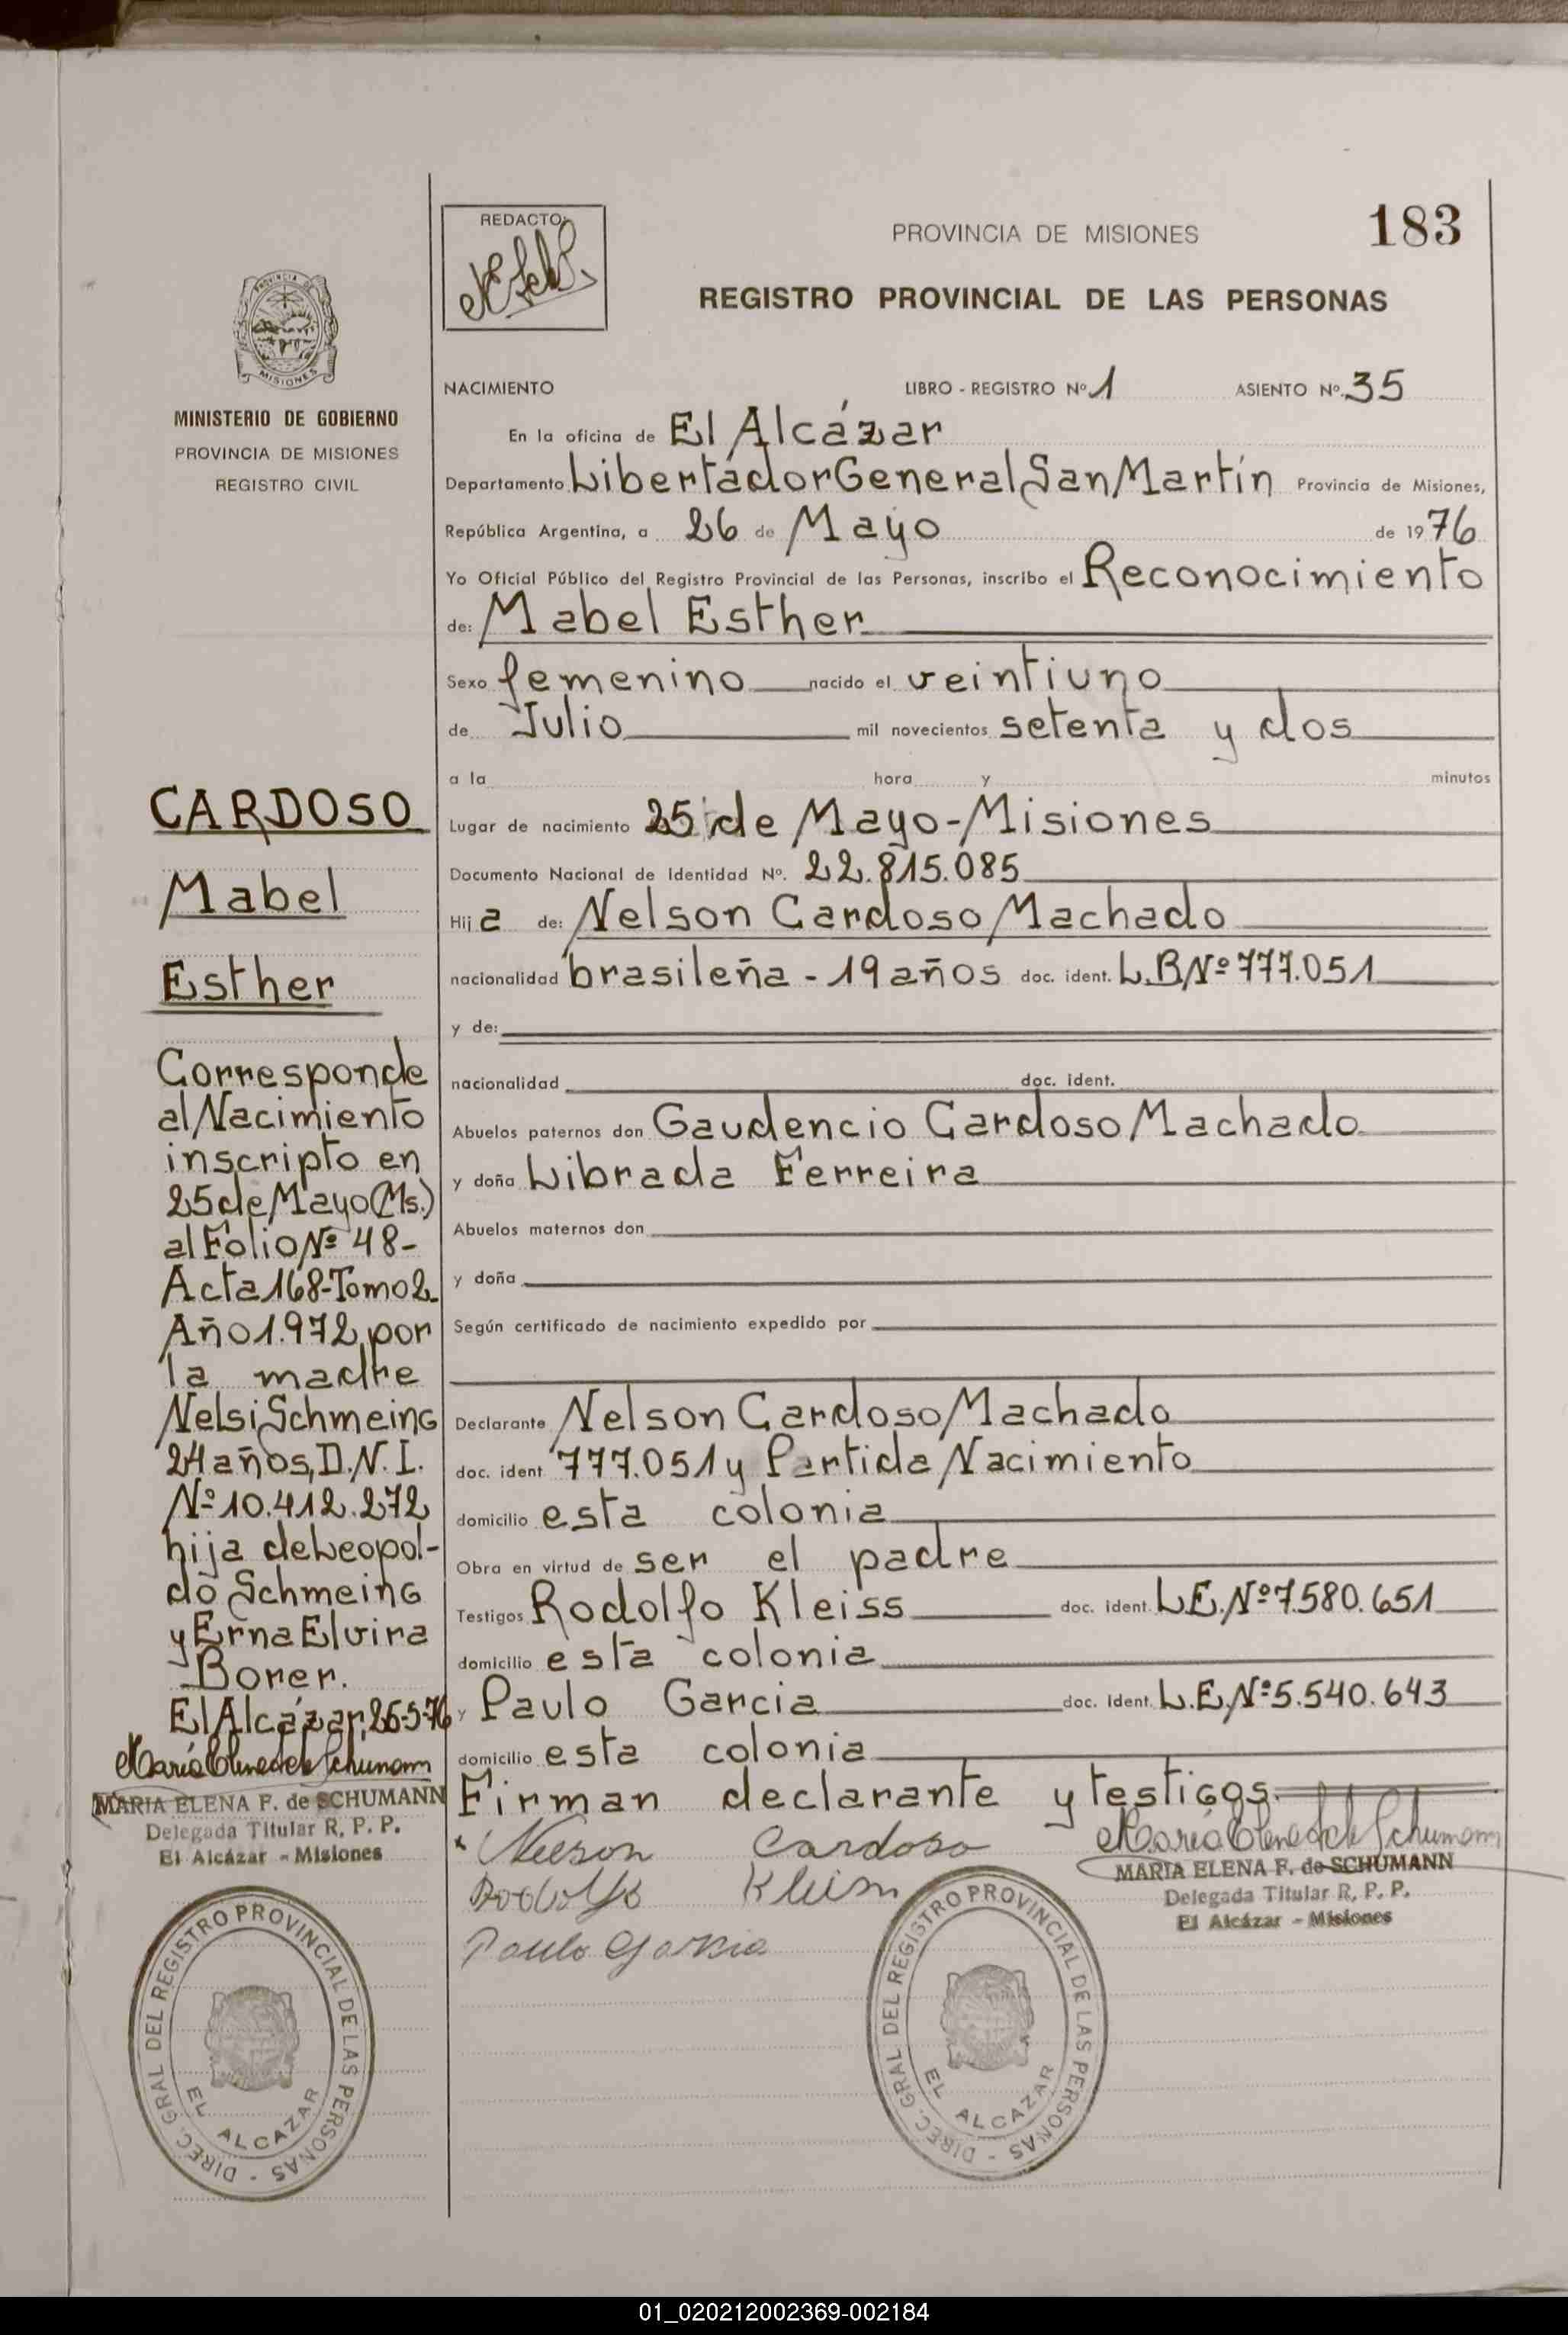 183
REDACTO:
PROVINCIA DE MISIONES
REGISTRO PROVINCIAL DE LAS PERSONAS
PROVINCIA DE
MISIONES
MINISTERIO DE GOBIERNO
PROVINCIA DE MISIONES
REGISTRO CIVIL
CARDOSO
Mabel
Esther
Corresponde
al Nacimiento
inscripto en
25 de Mayo (Ms.)
al Folio Nº 48-
Acta 168-Tomo 2-
Año 1.972, por
la madre
Nelsi Schmeing
24 años, D.N.I.
Nº 10.412.272
hija de Leopol-
do Schmeing
y Erna Elvira
Borer.
El Alcázar, 26-5-76
MARIA ELENA F. de SCHUMANN
Delegada Titular R. P. P.
El Alcázar - Misiones
DIREC. GRAL DEL REGISTRO PROVINCIAL DE LAS PERSONAS -
EL ALCAZAR
NACIMIENTO LIBRO - REGISTRO Nº 1 ASIENTO Nº. 35
En la oficina de El Alcázar
Departamento Libertador General San Martín Provincia de Misiones,
República Argentina, a 26 de Mayo de 1976
Yo Oficial Público del Registro Provincial de las Personas, inscribo el Reconocimiento
de: Mabel Esther
Sexo femenino nacido el veintiuno
de Julio mil novecientos setenta y dos
a la hora y minutos
Lugar de nacimiento 25 de Mayo - Misiones
Documento Nacional de Identidad Nº. 22.815.085
Hija de: Nelson Cardoso Machado
nacionalidad brasileña - 19 años doc. ident. L.B Nº 777.051
y de:
nacionalidad doc. ident.
Abuelos paternos don Gaudencio Cardoso Machado
y doña Librada Ferreira
Abuelos maternos don
y doña
Según certificado de nacimiento expedido por
Declarante Nelson Cardoso Machado
doc. ident 777.051 y Partida Nacimiento
domicilio esta colonia
Obra en virtud de ser el padre
Testigos Rodolfo Kleiss doc. ident. L.E. Nº 7.580.651
domicilio esta colonia
y Paulo Garcia doc. ident. L.E. Nº 5.540.643
domicilio esta colonia
Firman declarante y testigos.
Nelson Cardoso
Paulo Garcia
MARIA ELENA F. de SCHUMANN
Delegada Titular R. P. P.
El Alcázar - Misiones
DIREC. GRAL DEL REGISTRO PROVINCIAL DE LAS PERSONAS -
EL ALCAZAR
01_020212002369-002184